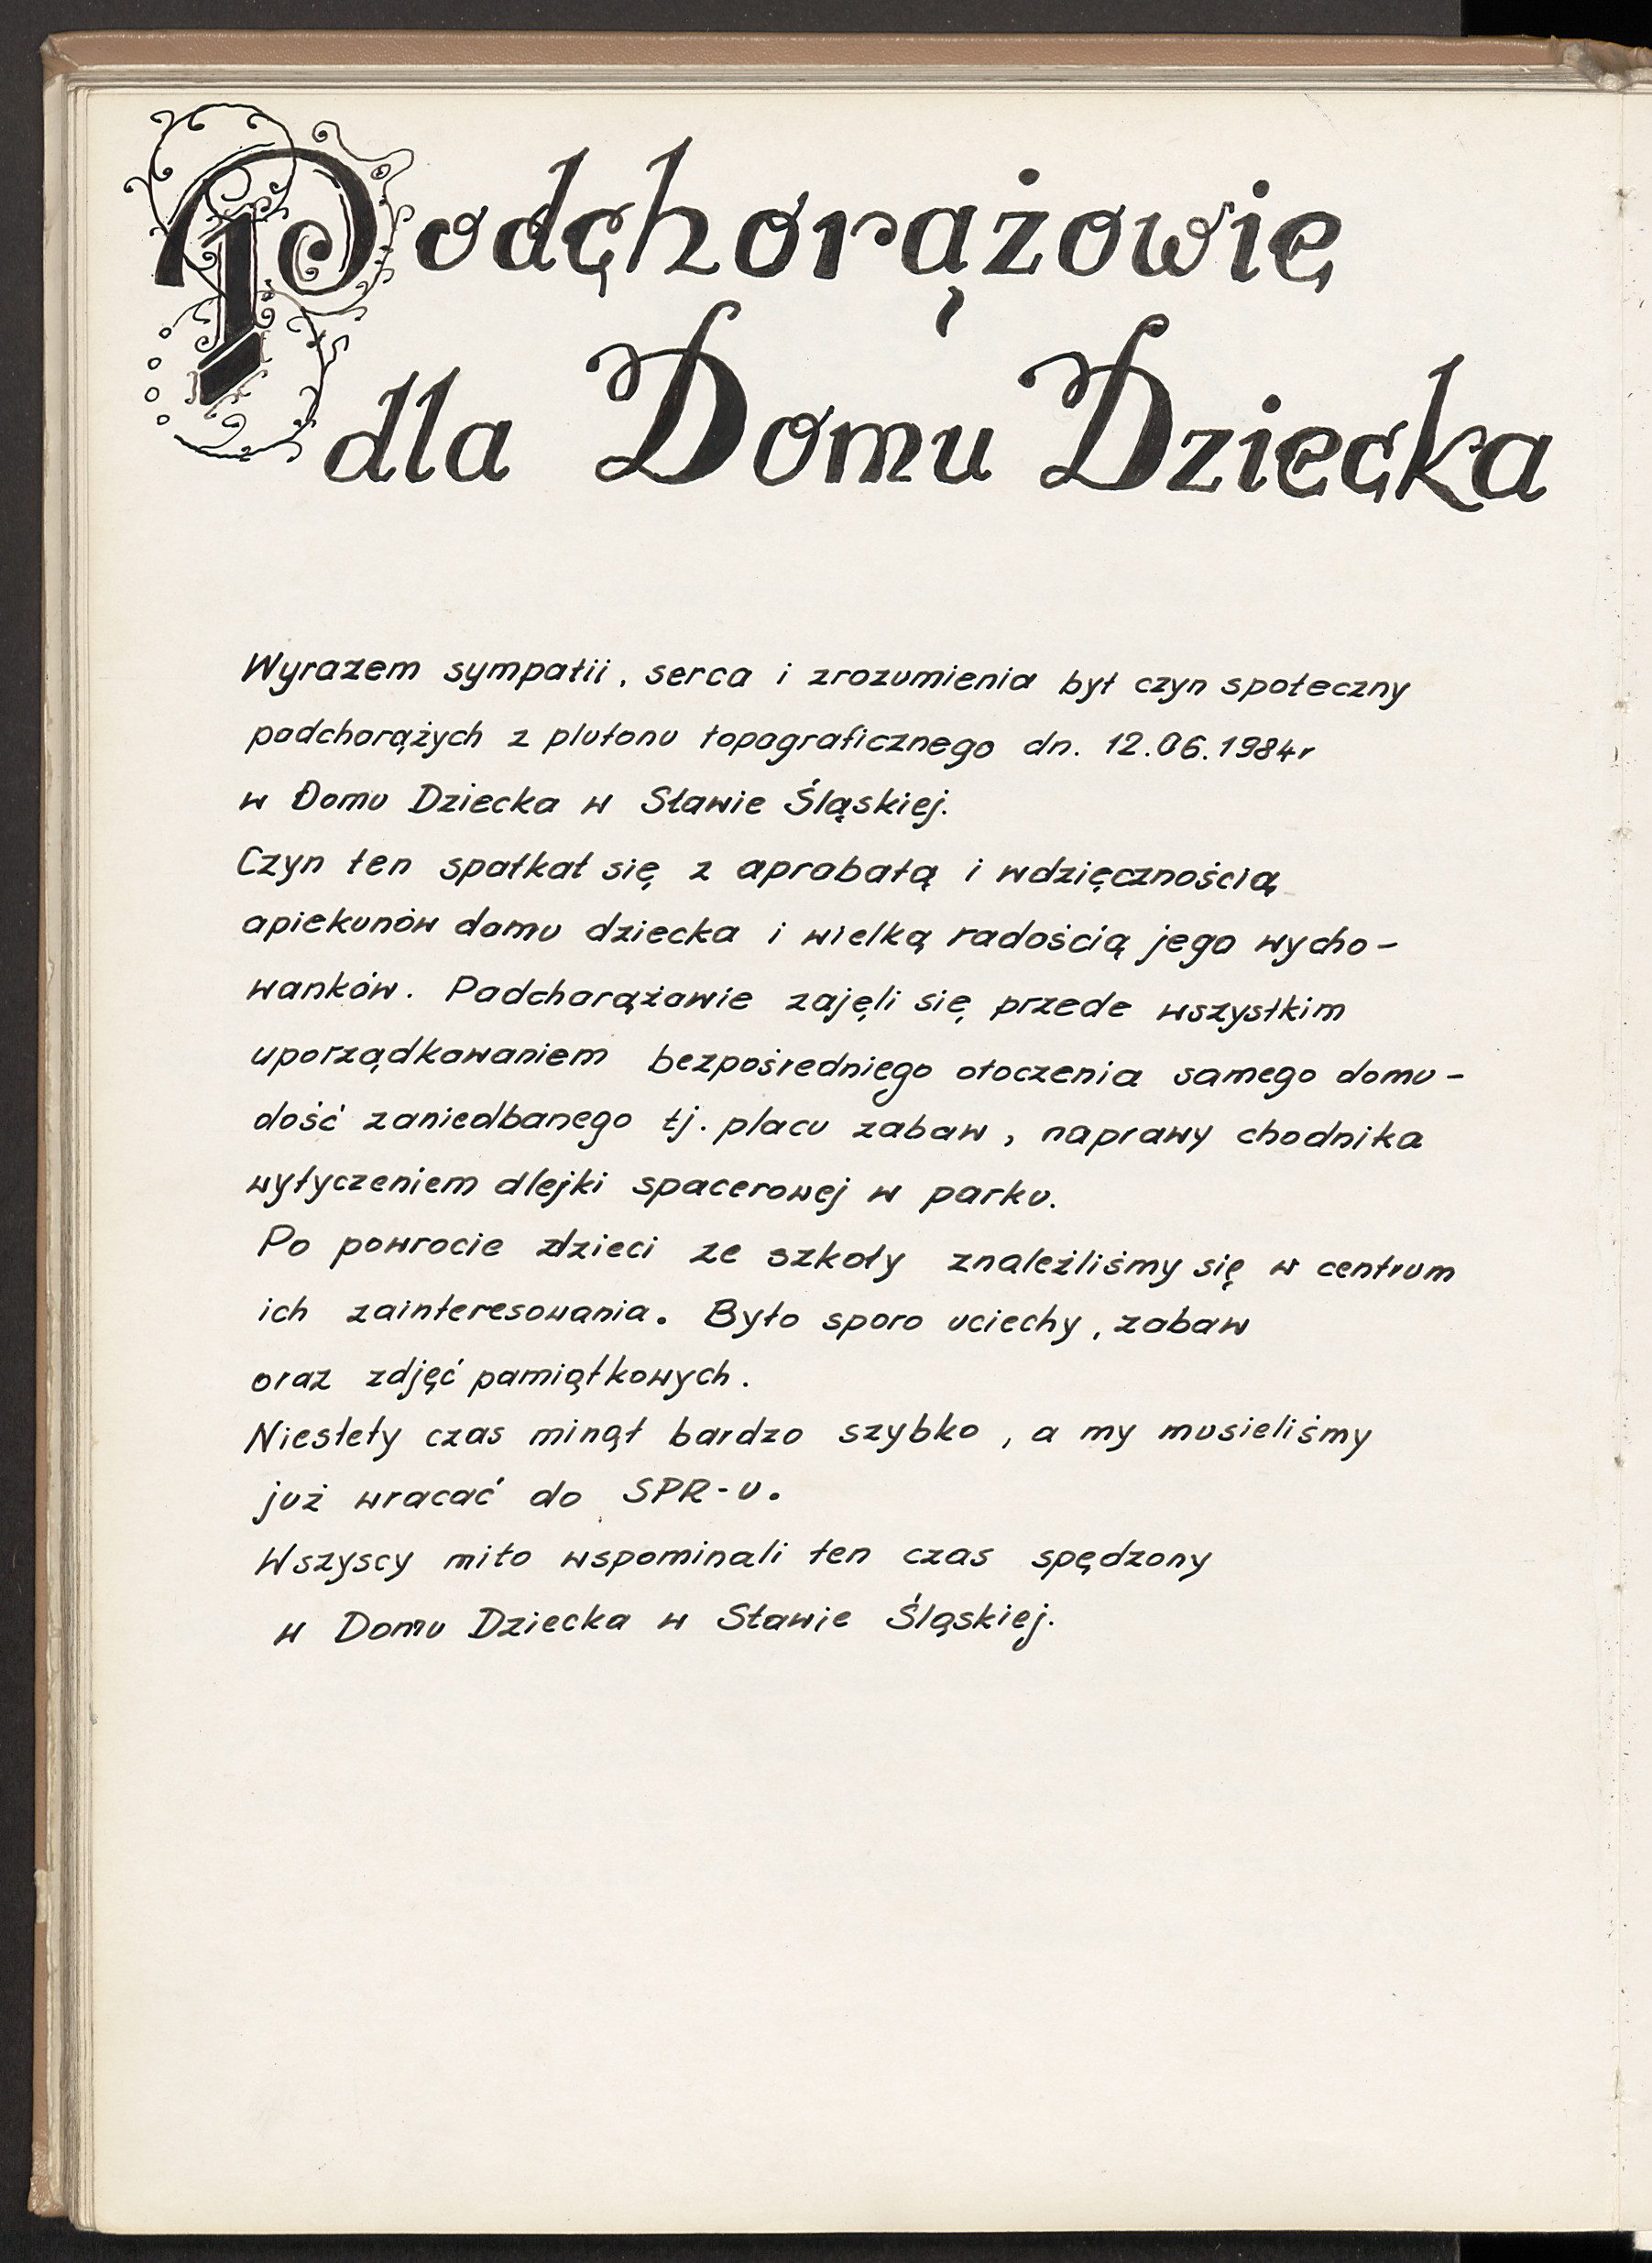 Podchorążowie
dla Domu Dziecka
Wyrazem sympatii, serca i zrozumienia był czyn społeczny
podchorążych z plutonu topograficznego dn. 12.06.1984r
w Domu Dziecka w Sławie Śląskiej.
Czyn ten spotkał się z aprobatą i wdzięcznością
opiekunów domu dziecka i wielką radością jego wycho-
wanków. Podchorążowie zajęli się przede wszystkim
uporządkowaniem bezpośredniego otoczenia samego domu -
dość zaniedbanego tj. placu zabaw, naprawy chodnika
wytyczeniem alejki spacerowej w parku.
Po powrocie dzieci ze szkoły znaleźliśmy się w centrum
ich zainteresowania. Było sporo uciechy, zabaw
oraz zdjęć pamiątkowych.
Niestety czas minął bardzo szybko, a my musieliśmy
już wracać do SPR-u.
Wszyscy miło wspominali ten czas spędzony
w Domu Dziecka w Sławie Śląskiej.